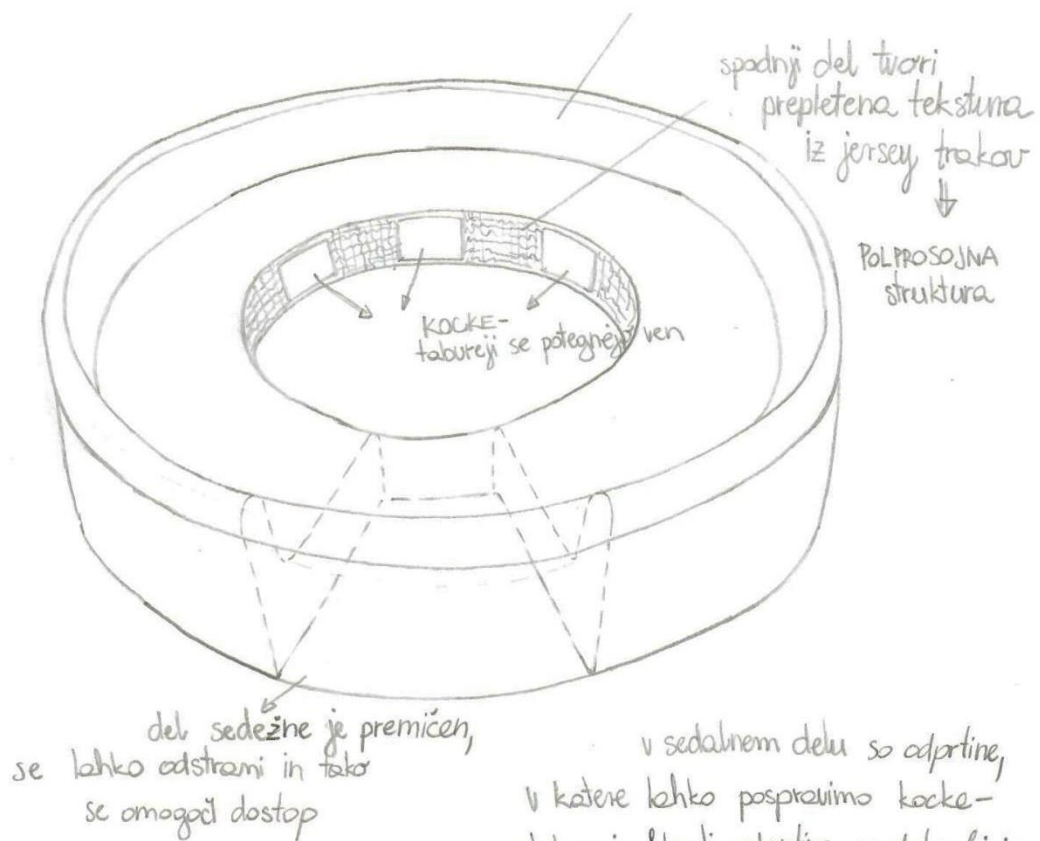 spodnji del tvori
prepletena tekstura
iz jersey trakov
POLPROSOJNA
struktura
KOCKE-
tabureji se potegnejo ven
del sedežne je premičen,
se lahko odstrani in tako
se omogoči dostop
v sedalnem delu so odprtine,
v katere lahko pospravimo kocke-